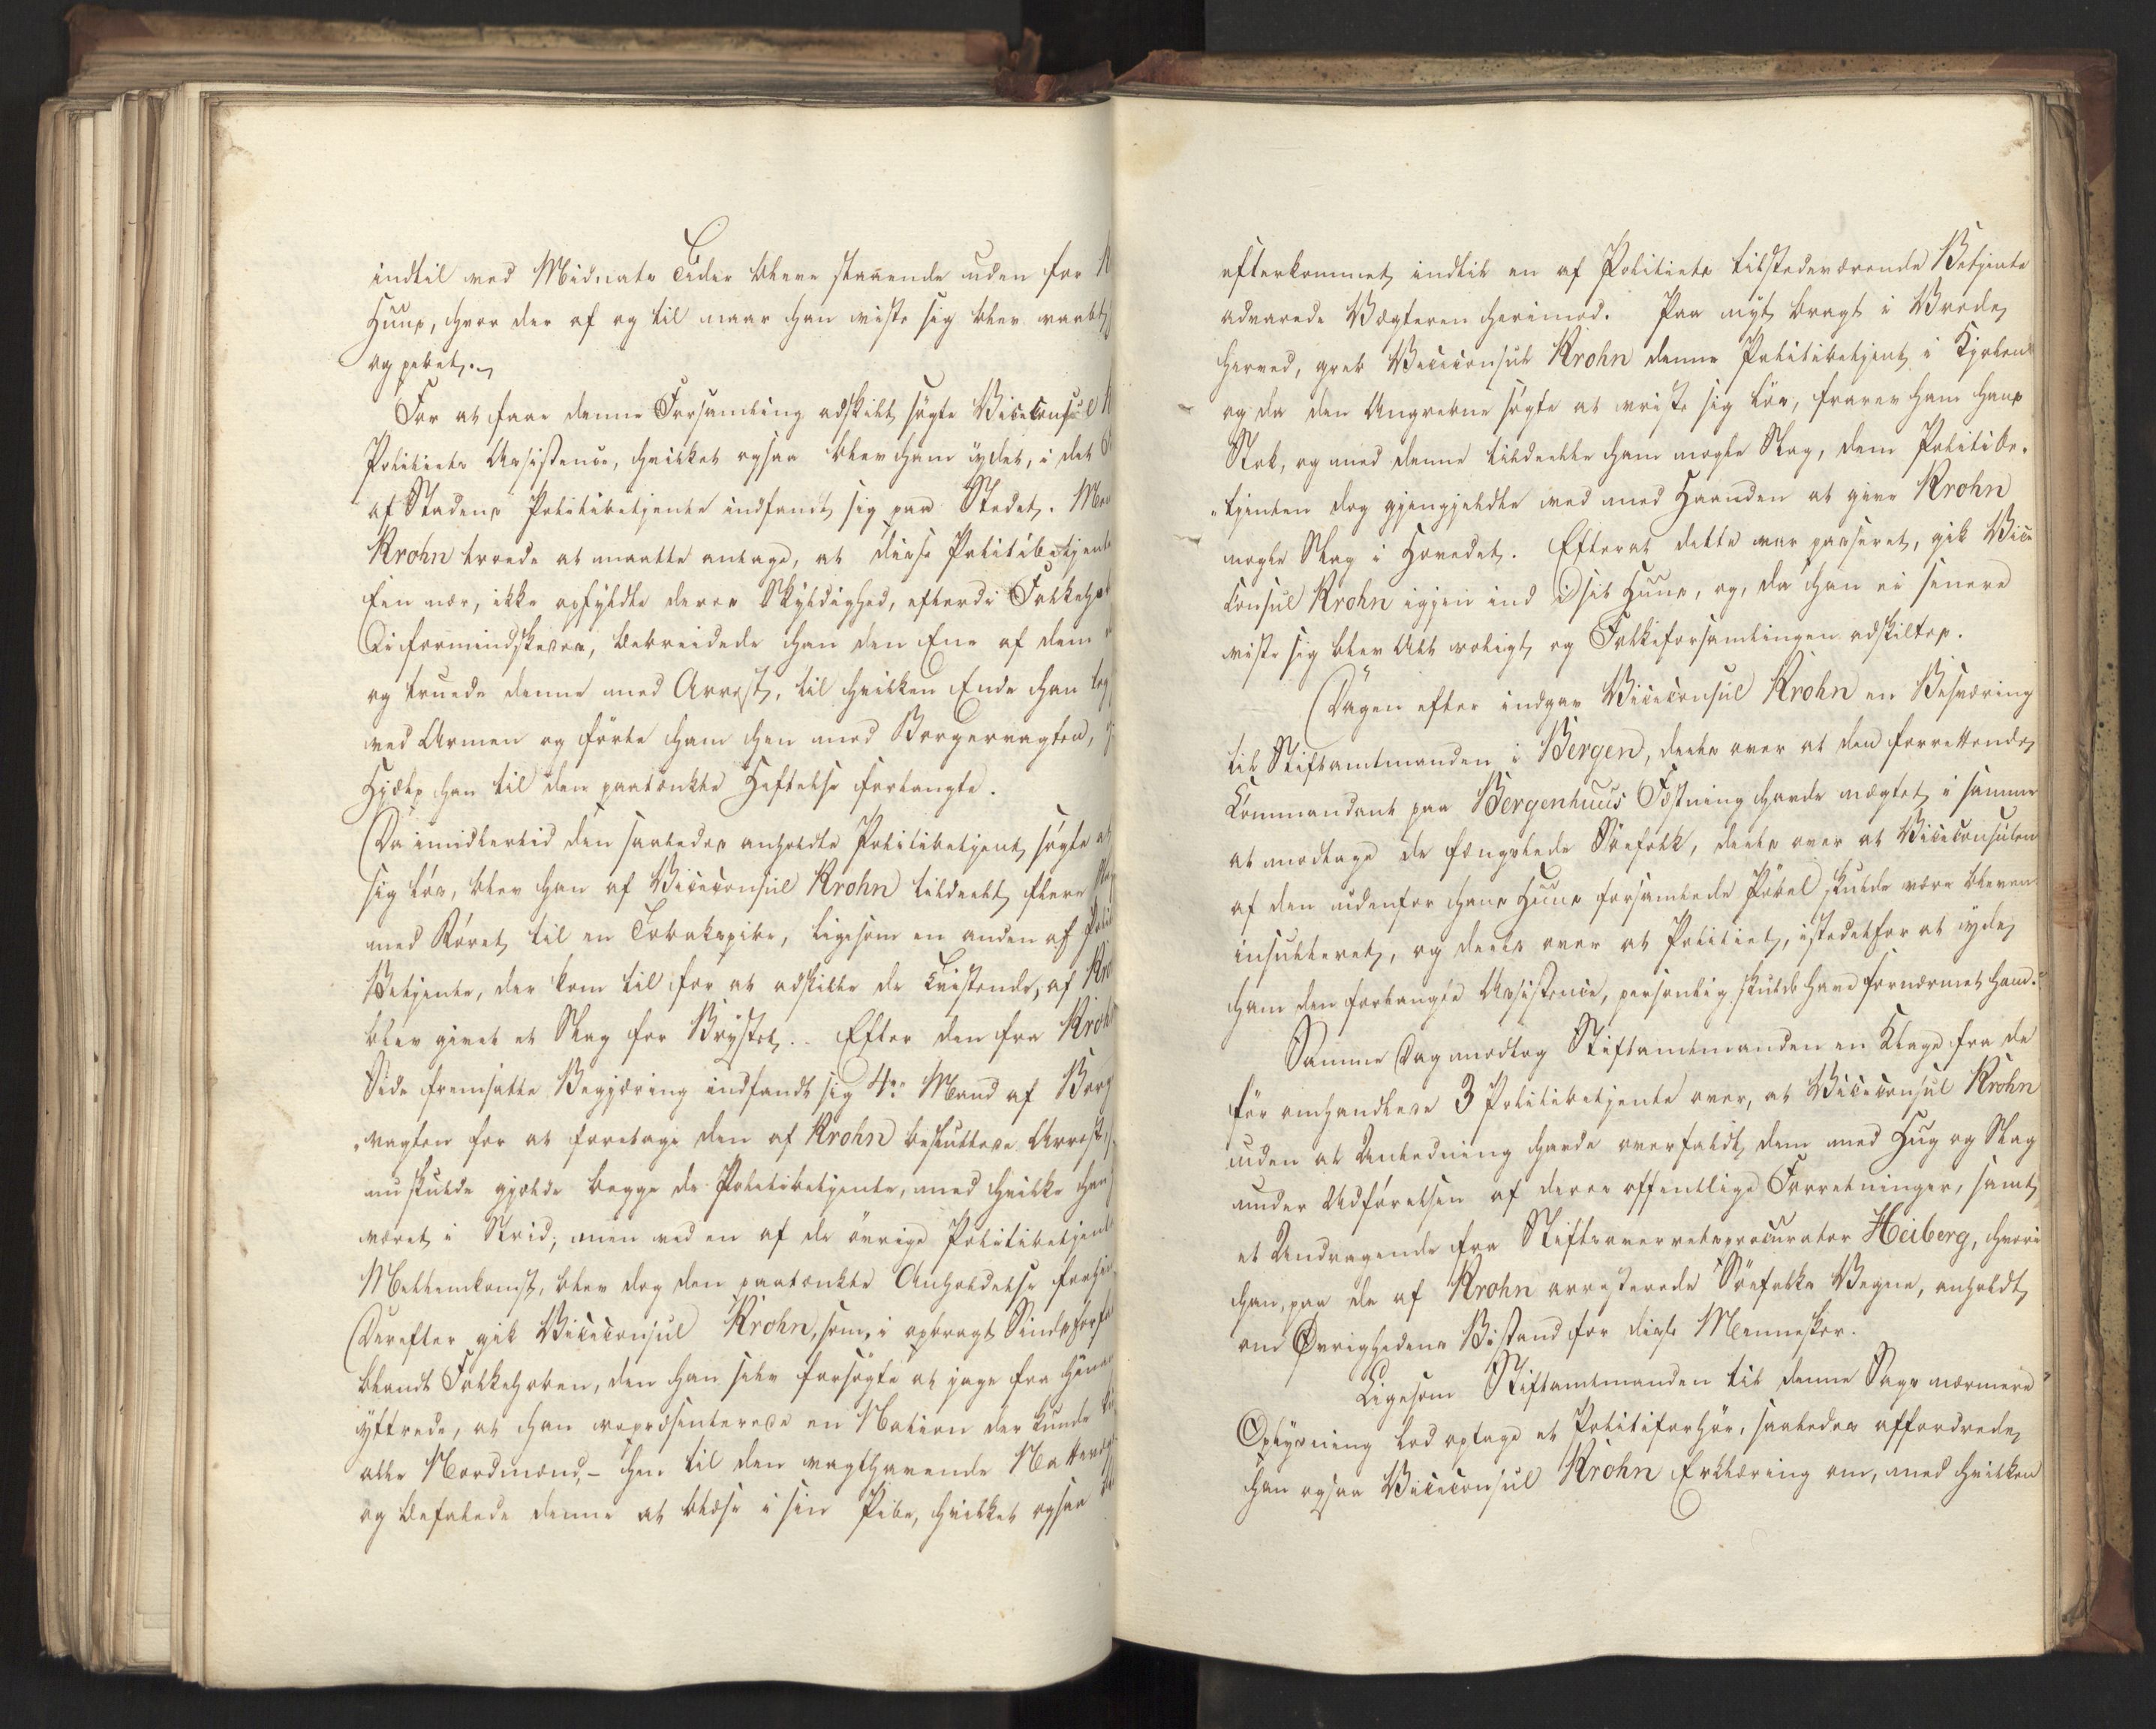 indtil ved Midnats Tider bleve staaende uden for K
Huus, hvor der af og til naar han viste sig blev raabt
og pebet.
For at faae denne Forsamling adskilt søgte Viceconsul K
Politiets Assistence, hvilket ogsaa blev ham ydet, i det
af Stadens Politibetjente indfandt sig paa Stedet. Men
Krohn troede at maatte antage, at disse Politibetjente
Een nær, ikke opfyldte deres Skyldighed, efterdi Folkehoben
ei formindskedes, bebreidede han den Ene af dem
og truede denne med Arrest, til hvilken Ende han tog
ved Armen og førte ham hen mod Borgervagten,
Hjælp han til den paatænkte Heftelse forlangte.
Da imidlertid den saaledes anholdte Politibetjent søgte at
sig løs, blev han af Viceconsul Krohn tildeelt flere Slag
med Røret til en Tobakspibe, ligesom en anden af Politiets
Betjente, der kom til for at adskille de Tvistende, af Kro
blev givet et Slag for Brystet. Efter den fra Krohns
Side fremsatte Begjæring indfandt sig 4re Mand af Borger
vagten for at foretage den af Krohn besluttede Arrest,
nu skulde gjælde begge de Politibetjente, med hvilke han
været i Strid; men ved en af de øvrige Politibetjentes
Mellemkomst, blev dog den paatænkte Anholdelse forhin
Derefter gik Viceconsul Krohn, som, i opbragt Sindsforfa
blandt Folkehoben, den han selv forsøgte at jage fra hina
yttrede, at han repræsenterede en Nation der kunde
alle Nordmænd, – hen til den vagthavende Nattevægter
og befalede denne at blæse i sin Pibe, hvilket ogsaa
efterkommet, indtil en af Politiets tilstedeværende Betjente
advarede Vægteren herimod. Paa nyt bragt i Vrede
herved, greb Viceconsul Krohn denne Politibetjent i Kjolen
og da den Angrebne søgte at vriste sig løs, frarev ham hans
Stok, og med denne tildeelte ham nogle Slag, dem Politibe-
tjenten dog gjengjeldte ved med Haanden at give Krohn
nogle Slag i Hovedet. Efterat dette var passeret, gik Vice
consul Krohn igjen ind i sit Huus, og, da han ei senere
viste sig blev Alt roligt og Folkeforsamlingen adskiltes.
Dagen efter indgav Viceconsul Krohn en Besværing
til Stiftamtmanden i Bergen, deels over at den forrettende
Commandant paa Bergenhuus Fæstning havde nægtet i samme
at modtage de fængslede Søefolk, deels over at Viceconsulen
af den udenfor hans Huus forsamlede Pøbel skulde være bleven
insulteret, og deels over at Politiet, istedetfor at yde
ham den forlangte Assistence, personlig skulde have fornærmet ham.
Samme Dag modtog Stiftamtmanden en Klage fra de
før omhandlede 3 Politibetjente over, at Viceconsul Krohn
uden al Anledning havde overfaldt dem med Hug og Slag
under Udførelsen af deres offentlige Forretninger, samt
et Andragende fra Stiftsoverretsprocurator Heiberg, hvori
han, paa de af Krohn arresterede Søefolks Vegne, anholdt
om Øvrighedens Bistand for disse Mennesker.
Ligesom Stiftamtmanden til denne Sags nærmere
Oplysning lod optage et Politiforhør, saaledes affordrede
han ogsaa Viceconsul Krohn Erklæring om, med hvilken